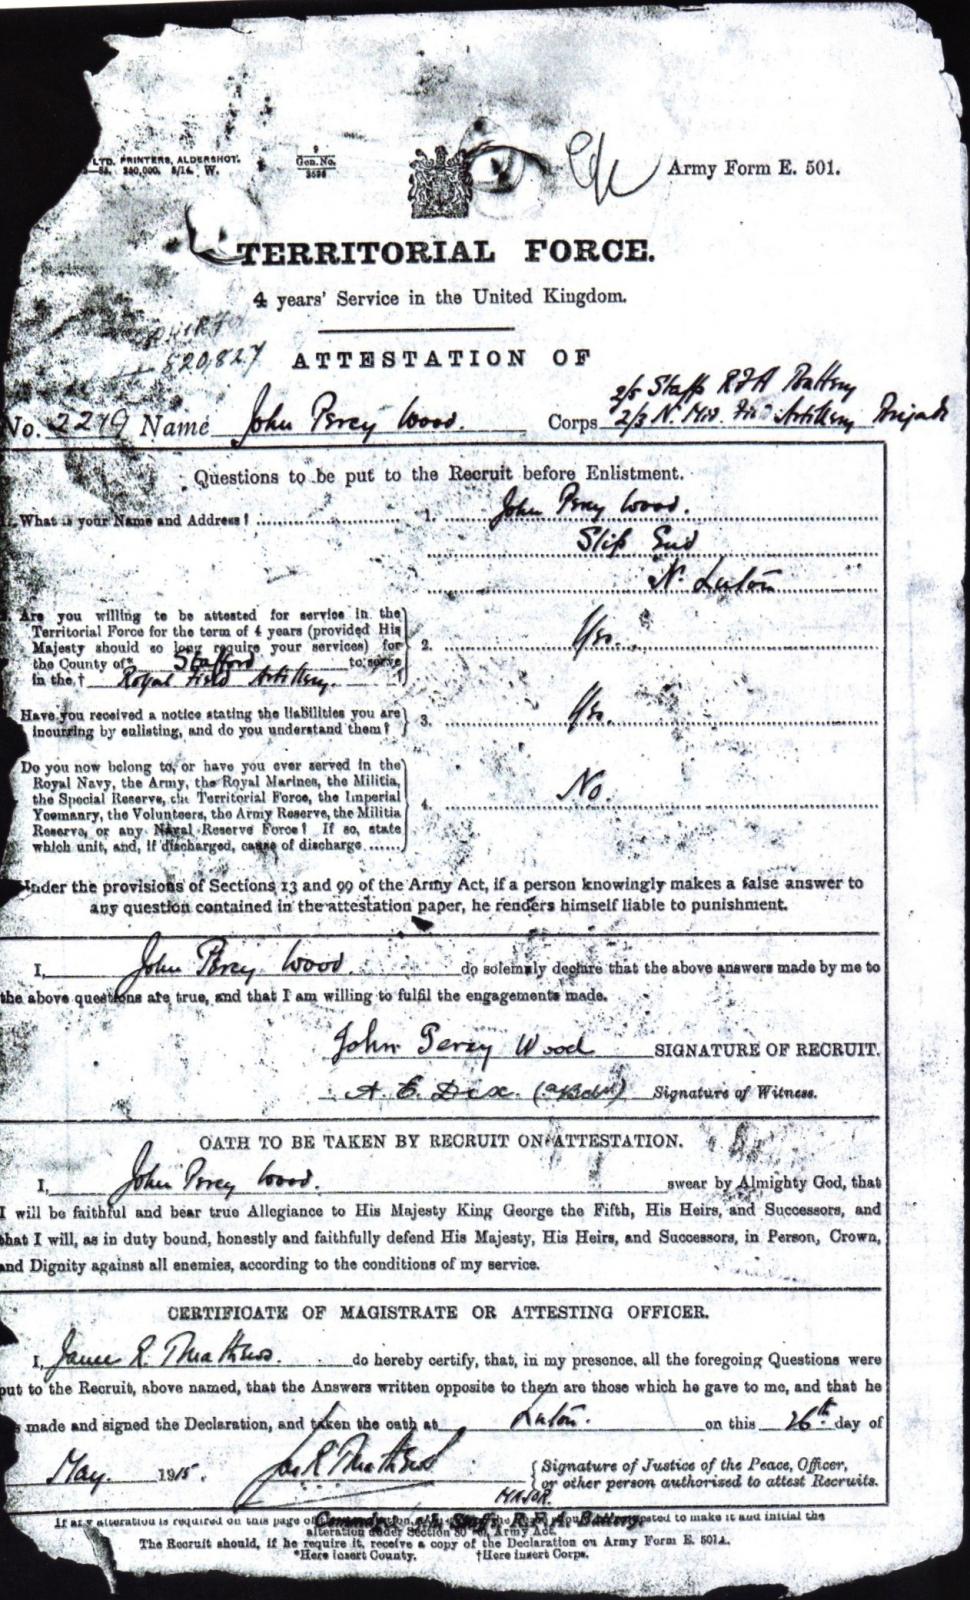 LTD. PRINTERS, ALDERSHOT.
250,000. 5/14. W.
9
Gen. No.
Army Form E. 501.
TERRITORIAL FORCE.
4 years' Service in the United Kingdom.
820,827
ATTESTATION OF
2/5 Staffs RFA Battery
No. 2279 Name John Percy Wood. Corps 2/3 N. Mid. Artillery Brigade
Questions to be put to the Recruit before Enlistment.
1. What is your Name and Address? 1. John Percy Wood.
Slip End
Nr. Luton
Are you willing to be attested for service in the
Territorial Force for the term of 4 years (provided His
Majesty should so long require your services) for 2. Yes.
the County of* Stafford to serve
in the,† Royal Field Artillery. ?
Have you received a notice stating the liabilities you are
incurring by enlisting, and do you understand them? 3. Yes.
Do you now belong to, or have you ever served in the
Royal Navy, the Army, the Royal Marines, the Militia,
the Special Reserve, the Territorial Force, the Imperial
Yeomanry, the Volunteers, the Army Reserve, the Militia 4. No.
Reserve, or any Naval Reserve Force? If so, state
which unit, and, if discharged, cause of discharge
Under the provisions of Sections 13 and 99 of the Army Act, if a person knowingly makes a false answer to
any question contained in the attestation paper, he renders himself liable to punishment.
I, John Percy Wood. do solemnly declare that the above answers made by me to
the above questions are true, and that I am willing to fulfil the engagements made.
John Percy Wood SIGNATURE OF RECRUIT.
A. E. Dix. Signature of Witness.
OATH TO BE TAKEN BY RECRUIT ON ATTESTATION.
I, John Percy Wood. swear by Almighty God, that
I will be faithful and bear true Allegiance to His Majesty King George the Fifth, His Heirs, and Successors, and
that I will, as in duty bound, honestly and faithfully defend His Majesty, His Heirs, and Successors, in Person, Crown,
and Dignity against all enemies, according to the conditions of my service.
CERTIFICATE OF MAGISTRATE OR ATTESTING OFFICER.
I, James R. Mathews. do hereby certify, that, in my presence, all the foregoing Questions were
put to the Recruit, above named, that the Answers written opposite to them are those which he gave to me, and that he
made and signed the Declaration, and taken the oath at Luton. on this 26th day of
May. 1915. Jas R Mathews Signature of Justice of the Peace, Officer,
or other person authorized to attest Recruits.
MAJOR.
Staffs R.F.A. Battery.
If any alteration is required on this page of to make it and initial the
alteration under Section 80 Army Act.
The Recruit should, if he require it, receive a copy of the Declaration on Army Form E. 501A.
*Here insert County. †Here insert Corps.